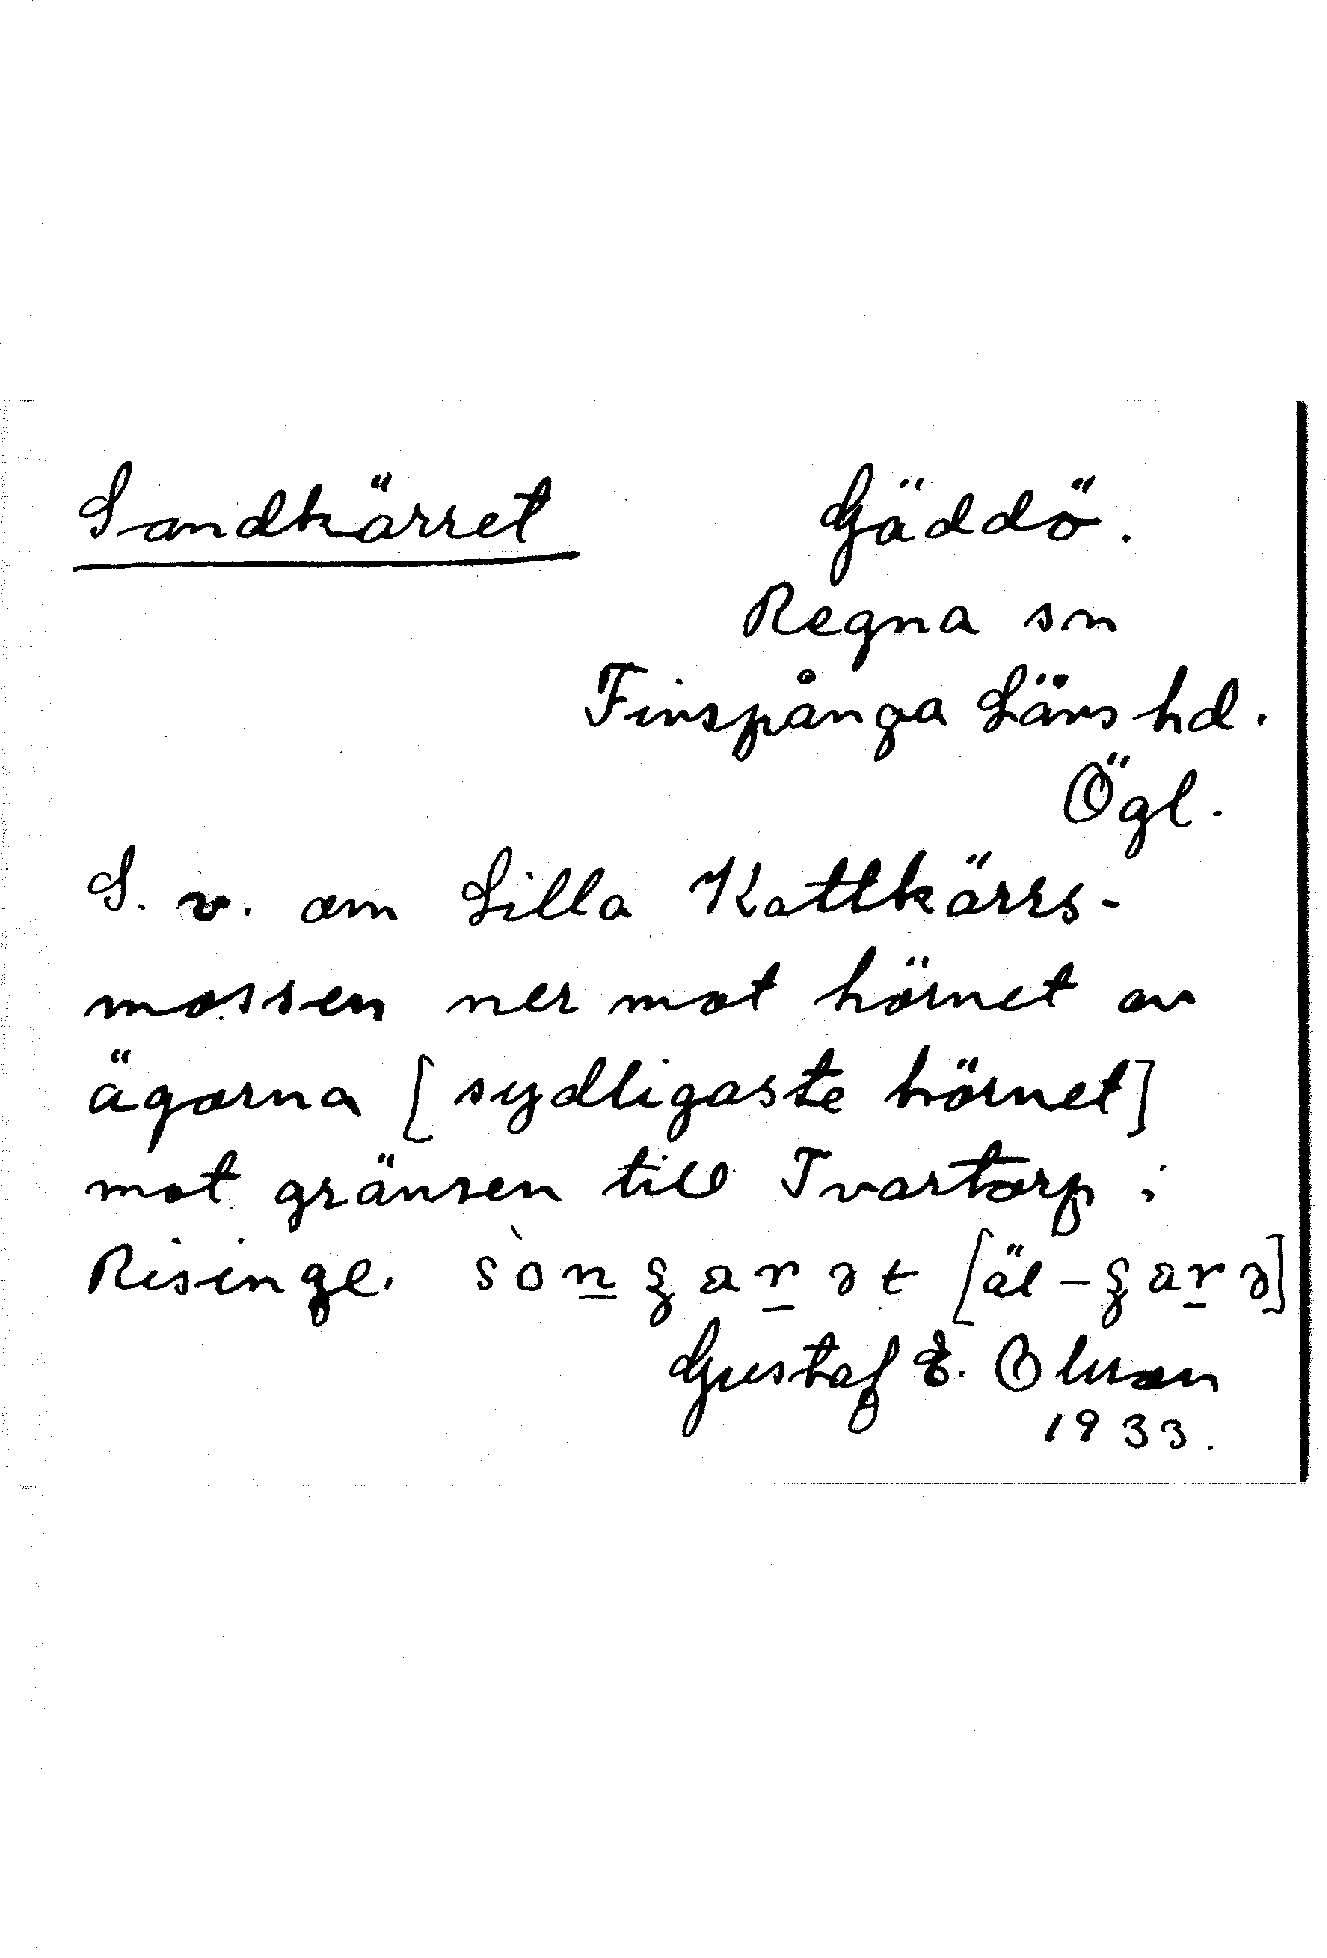 Sandkärret
Gäddö.
Regna sn
Finspånga Läns hd.
Ögl.
S. v. om Lilla Kattkärrs-
mossen ner mot hörnet av
ägorna [sydligaste hörnet]
mot gränsen till Tvartorp i
Risinge.
Gustaf E. Olsson
1933.